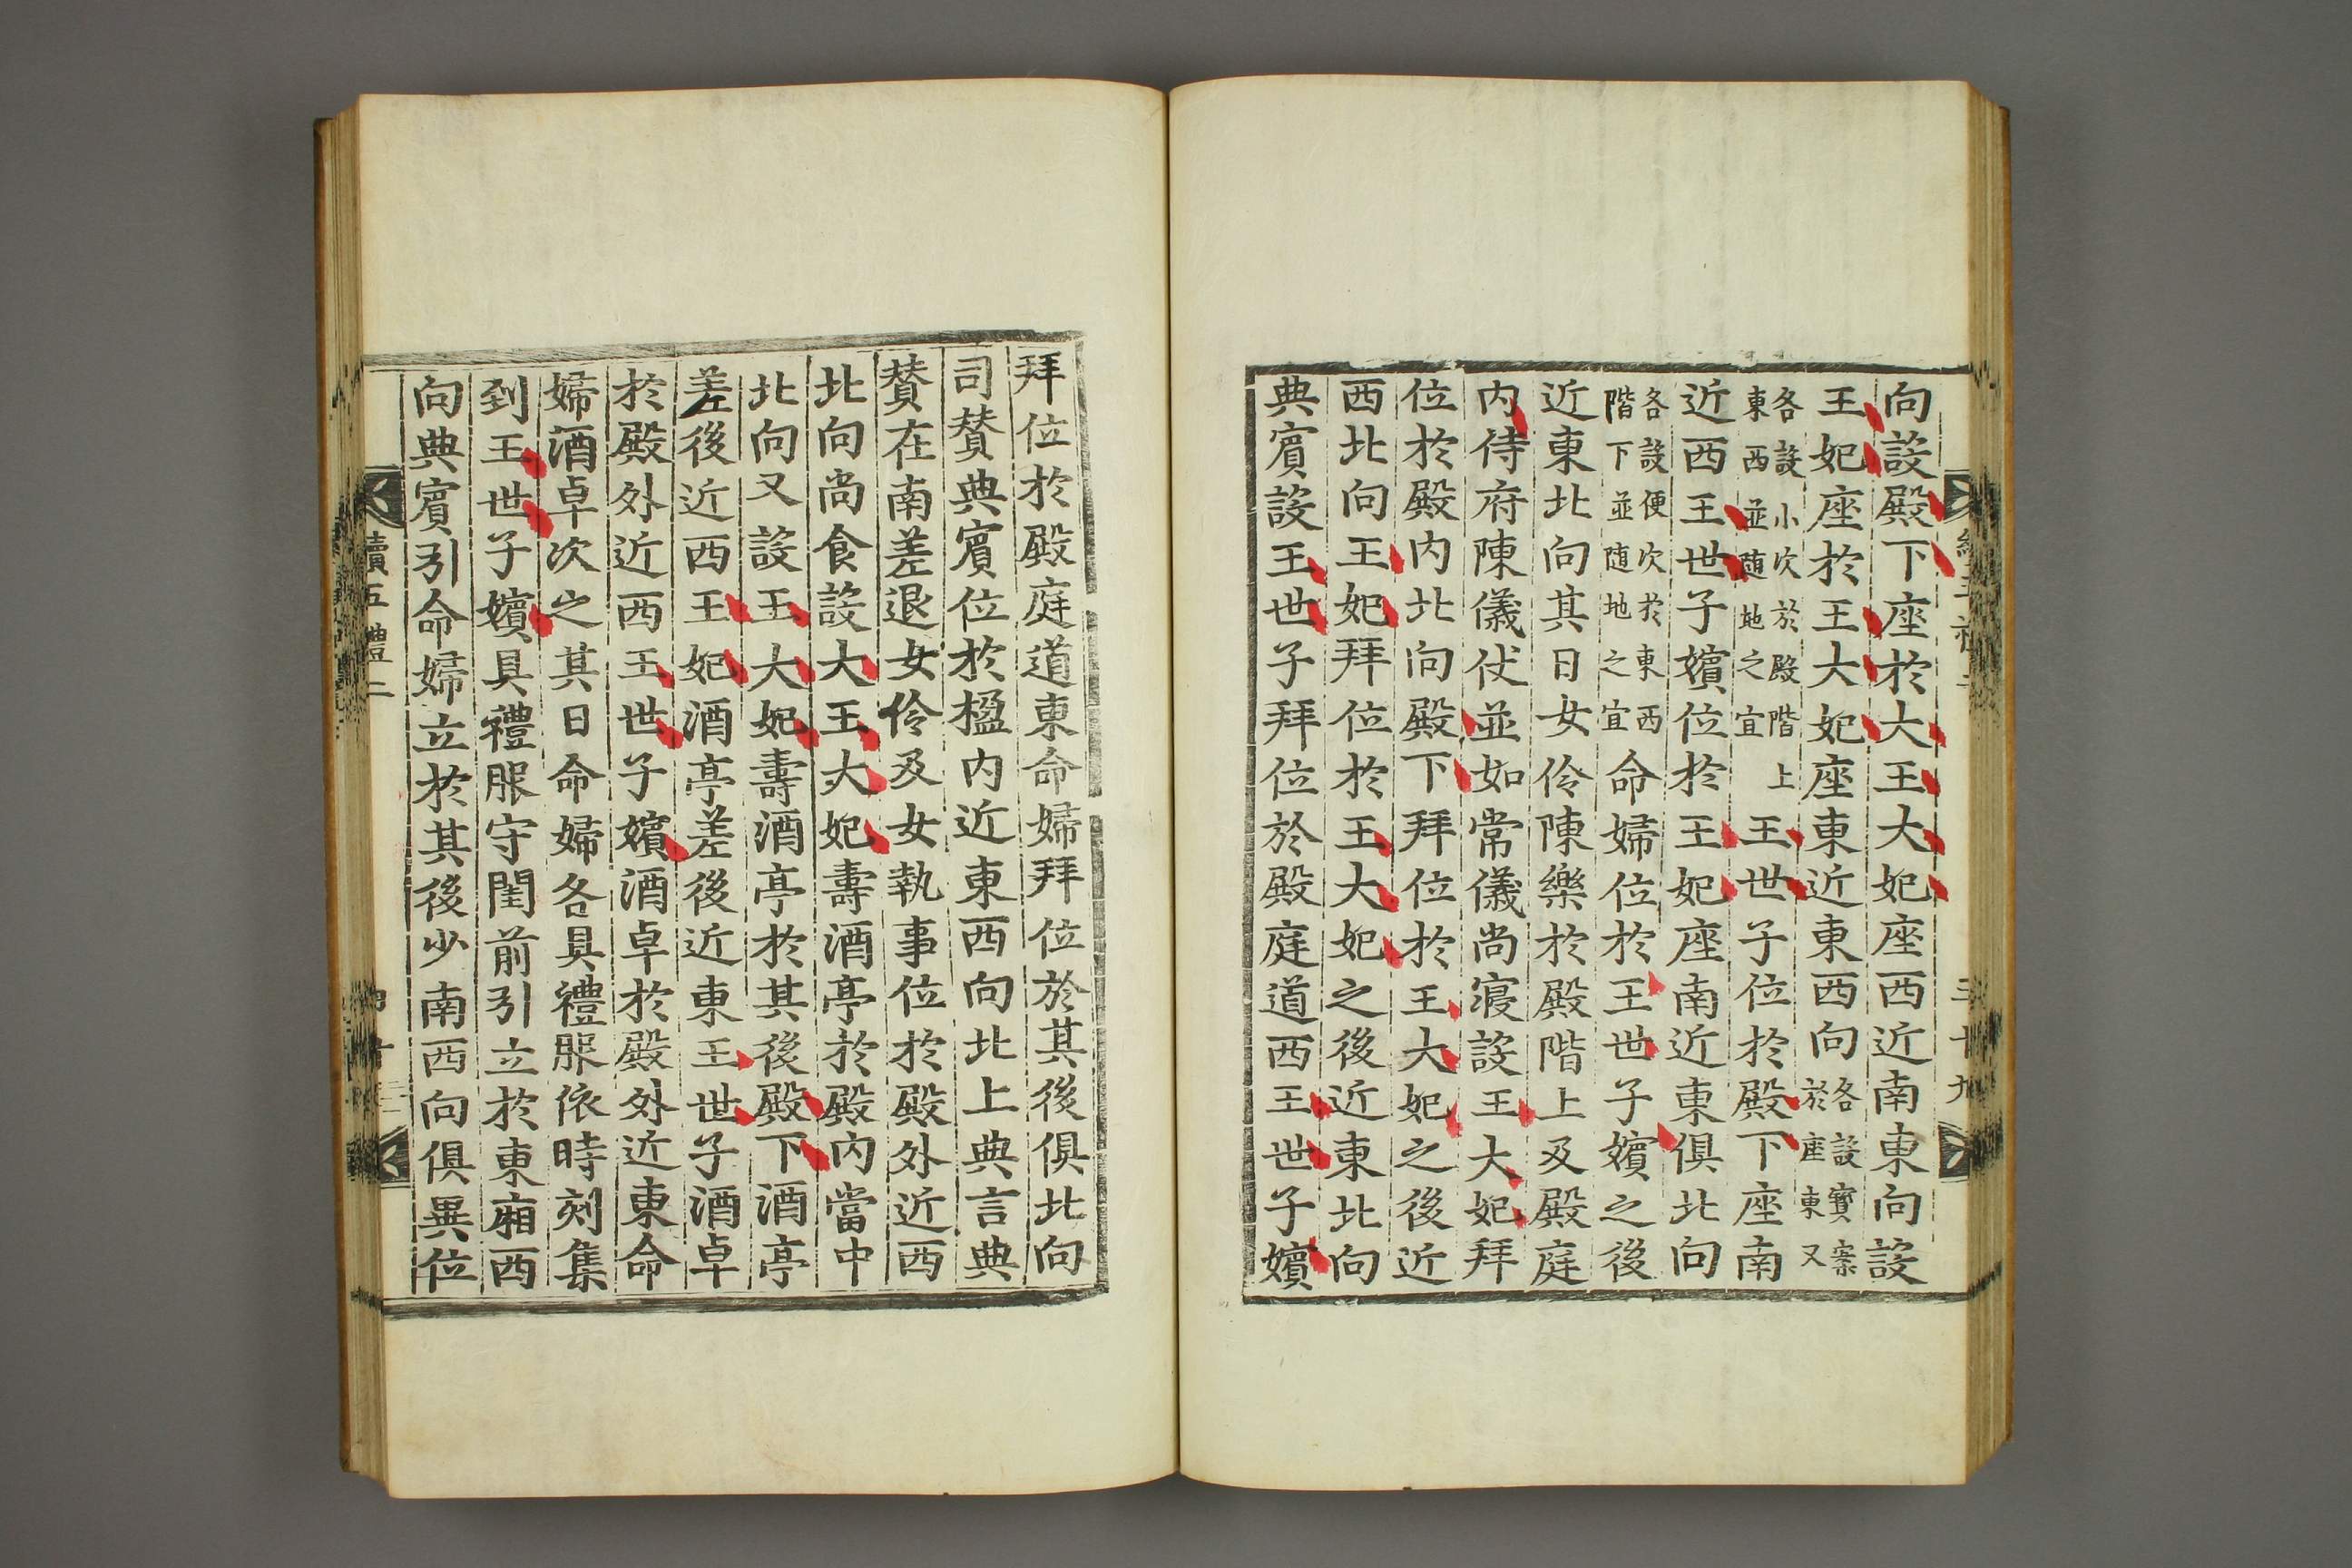 向設殿下座於大王大妃座西近南東向設
王妃座於王大妃座東近東西向各設寶案於座東又
各設小次於殿階上東西並随地之宜王世子位於殿下座南
近西王世子嬪位於王妃座南近東俱北向
各設便次於東西階下並随地之宜命婦位於王世子嬪之後
近東北向其日女伶陳樂於殿階上及殿庭
内侍府陳儀仗並如常儀尚寢設王大妃拜
位於殿内北向殿下拜位於王大妃之後近
西北向王妃拜位於王大妃之後近東北向
典賓設王世子拜位於殿庭道西王世子嬪
三十九
拜位於殿庭道東命婦拜位於其後俱北向
司賛典賓位於楹内近東西向北上典言典
賛在南差退女伶及女執事位於殿外近西
北向尚食設大王大妃壽酒亭於殿内當中
北向又設王大妃壽酒亭於其後殿下酒亭
差後近西王妃酒亭差後近東王世子酒卓
於殿外近西王世子嬪酒卓於殿外近東命
婦酒卓次之其日命婦各具禮服依時刻集
到王世子嬪具禮服守閨前引立於東廂西
向典賓引命婦立於其後少南西向俱異位
續五禮二